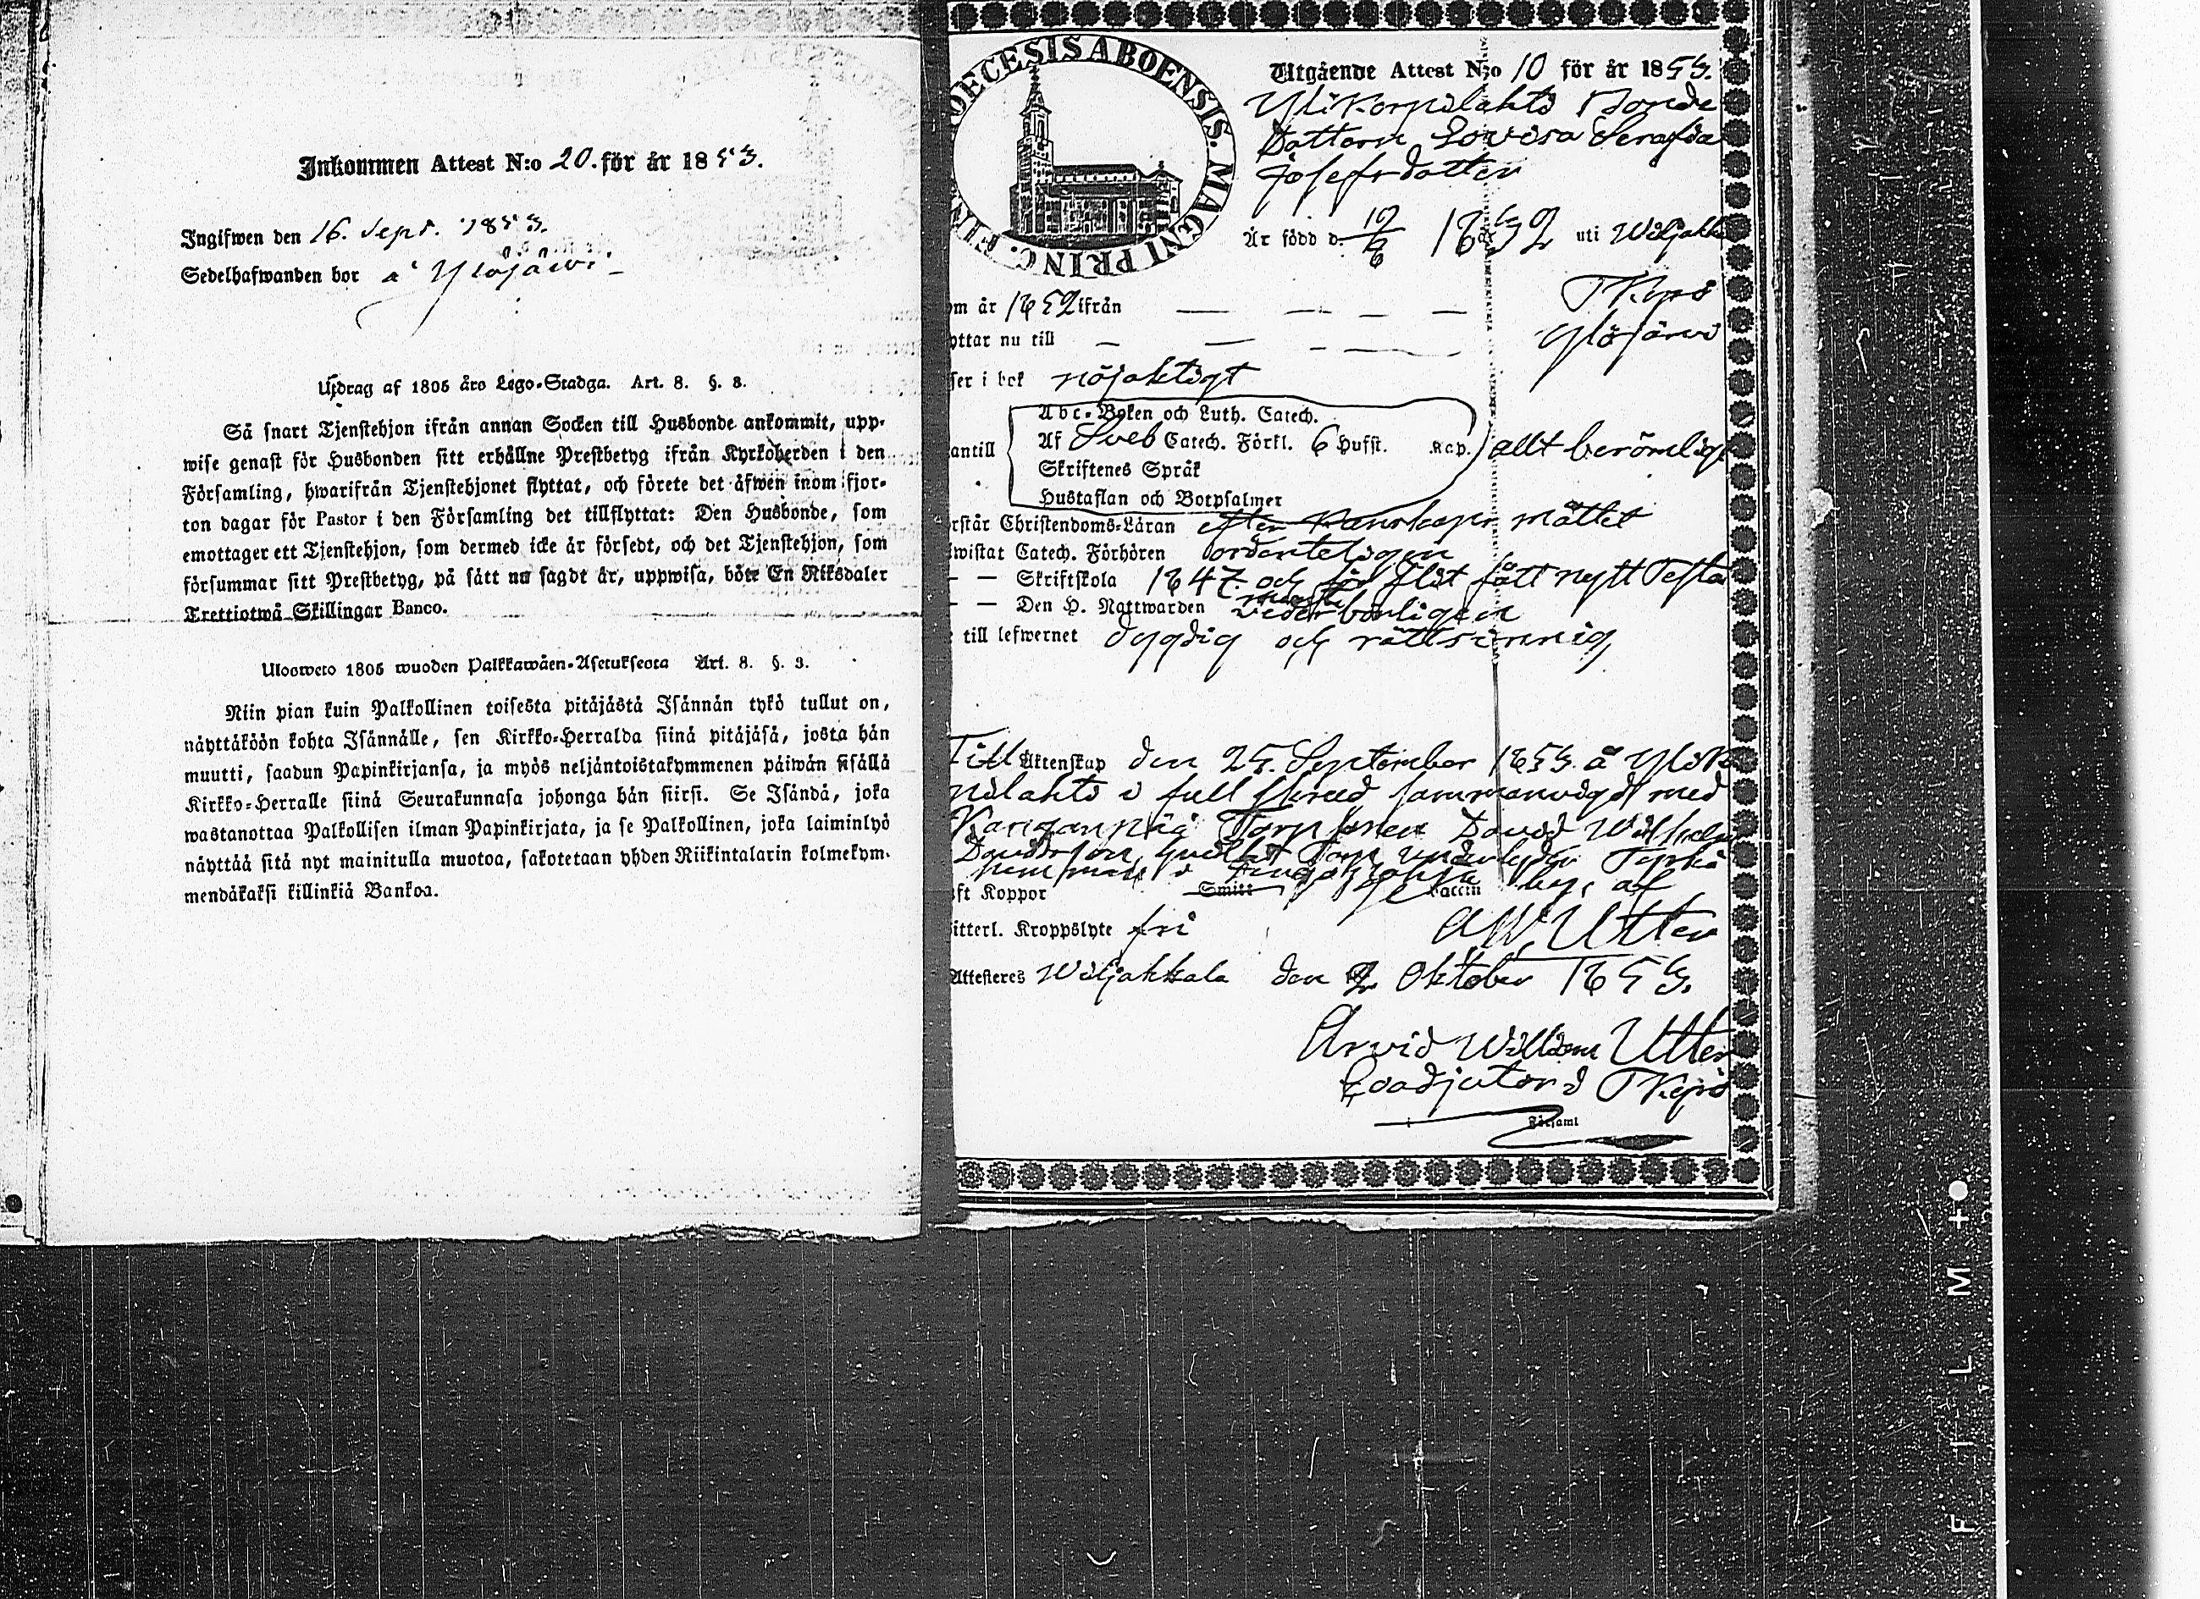 Inkommen Attest N:o 20. för år 1853.
Ingifwen den 16. Sept. 1853.
Sedelhafwanden bor å Ylöjärvi
Utdrag af 1805 års Lego-Stadga. Art. 8. §. 8.
Så snart Tjenstehjon ifrån annan Socken till Husbonde ankommit, upp-
wise genast för Husbonden sitt erhållne Prestbetyg ifrån Kyrkoherden i den
Församling, hwarifrån Tjenstehjonet flyttat, och förete det äfwen inom fjor-
ton dagar för Pastor i den Församling det tillflyttat: Den Husbonde, som
emottager ett Tjenstehjon, som dermed icke är försedt, och det Tjenstehjon, som
försummar sitt Prestbetyg, på sätt nu sagdt är, uppwisa, böte En Riksdaler
Trettiotwå Skillingar Banco.
Ulosweto 1805 wuoden Palkkawäen-Asetuksesta Art. 8. §. 3.
Niin pian kuin Palkollinen toisesta pitäjästä Isännän tykö tullut on,
näyttäköön kohta Isännälle, sen Kirkko-Herralda siinä pitäjäsä, josta hän
muutti, saadun Papinkirjansa, ja myös neljäntoistakymmenen päiwän sisällä
Kirkko-Herralle siinä Seurakunnasa johonga hän siirsi. Se Isändä, joka
wastanottaa Palkollisen ilman Papinkirjata, ja se Palkollinen, joka laiminlyö
näyttää sitä nyt mainitulla muotoa, sakotetaan yhden Riikintalarin kolmekym-
mendäkaksi killinkiä Bankoa.
OECESIS ABOENSIS. MAGNI PRINC. FIN
Utgående Attest N:o 10 för år 1853.
Ylikorpilahti Bonde
Dottern Lovisa Serafia
Josefsdotter
Är född d. 19/6 1832 uti Wiljakk
TKyrö
om år 1852 ifrån — — — —
Ylöjärvi
yttar nu till — — — —
ser i bok nöjaktigt
Abc-Boken och Luth. Catech.
antill Af Sveb Catech. Förkl. 6 Hufst. Kap. allt berömligt
Skriftenes Språk
Hustaflan och Botpsalmer
rstår Christendoms-Läran efter kunskaps måttet
wistat Catech. Förhören ordenteligen
— — Skriftskola 1847 och för flit fått nytt Testa
— — Den H. Nattwarden vederbörligen
till lefwernet dygdig och rättsinnig
Till Äktenskap den 25. September 1853. å Ylik
pilahti i full skrud sammanvigd med
Torp David Wilhelm
Davidsson, hvilket Torp underlyder
by, af
ft Koppor Smitt Vaccin
AW. Utter
itterl. Kroppslyte fri
Attesteres Wiljakkala den 2 Oktober 1853.
Arvid William Utter
Coadjutor i TKyrö
Församl
FILM